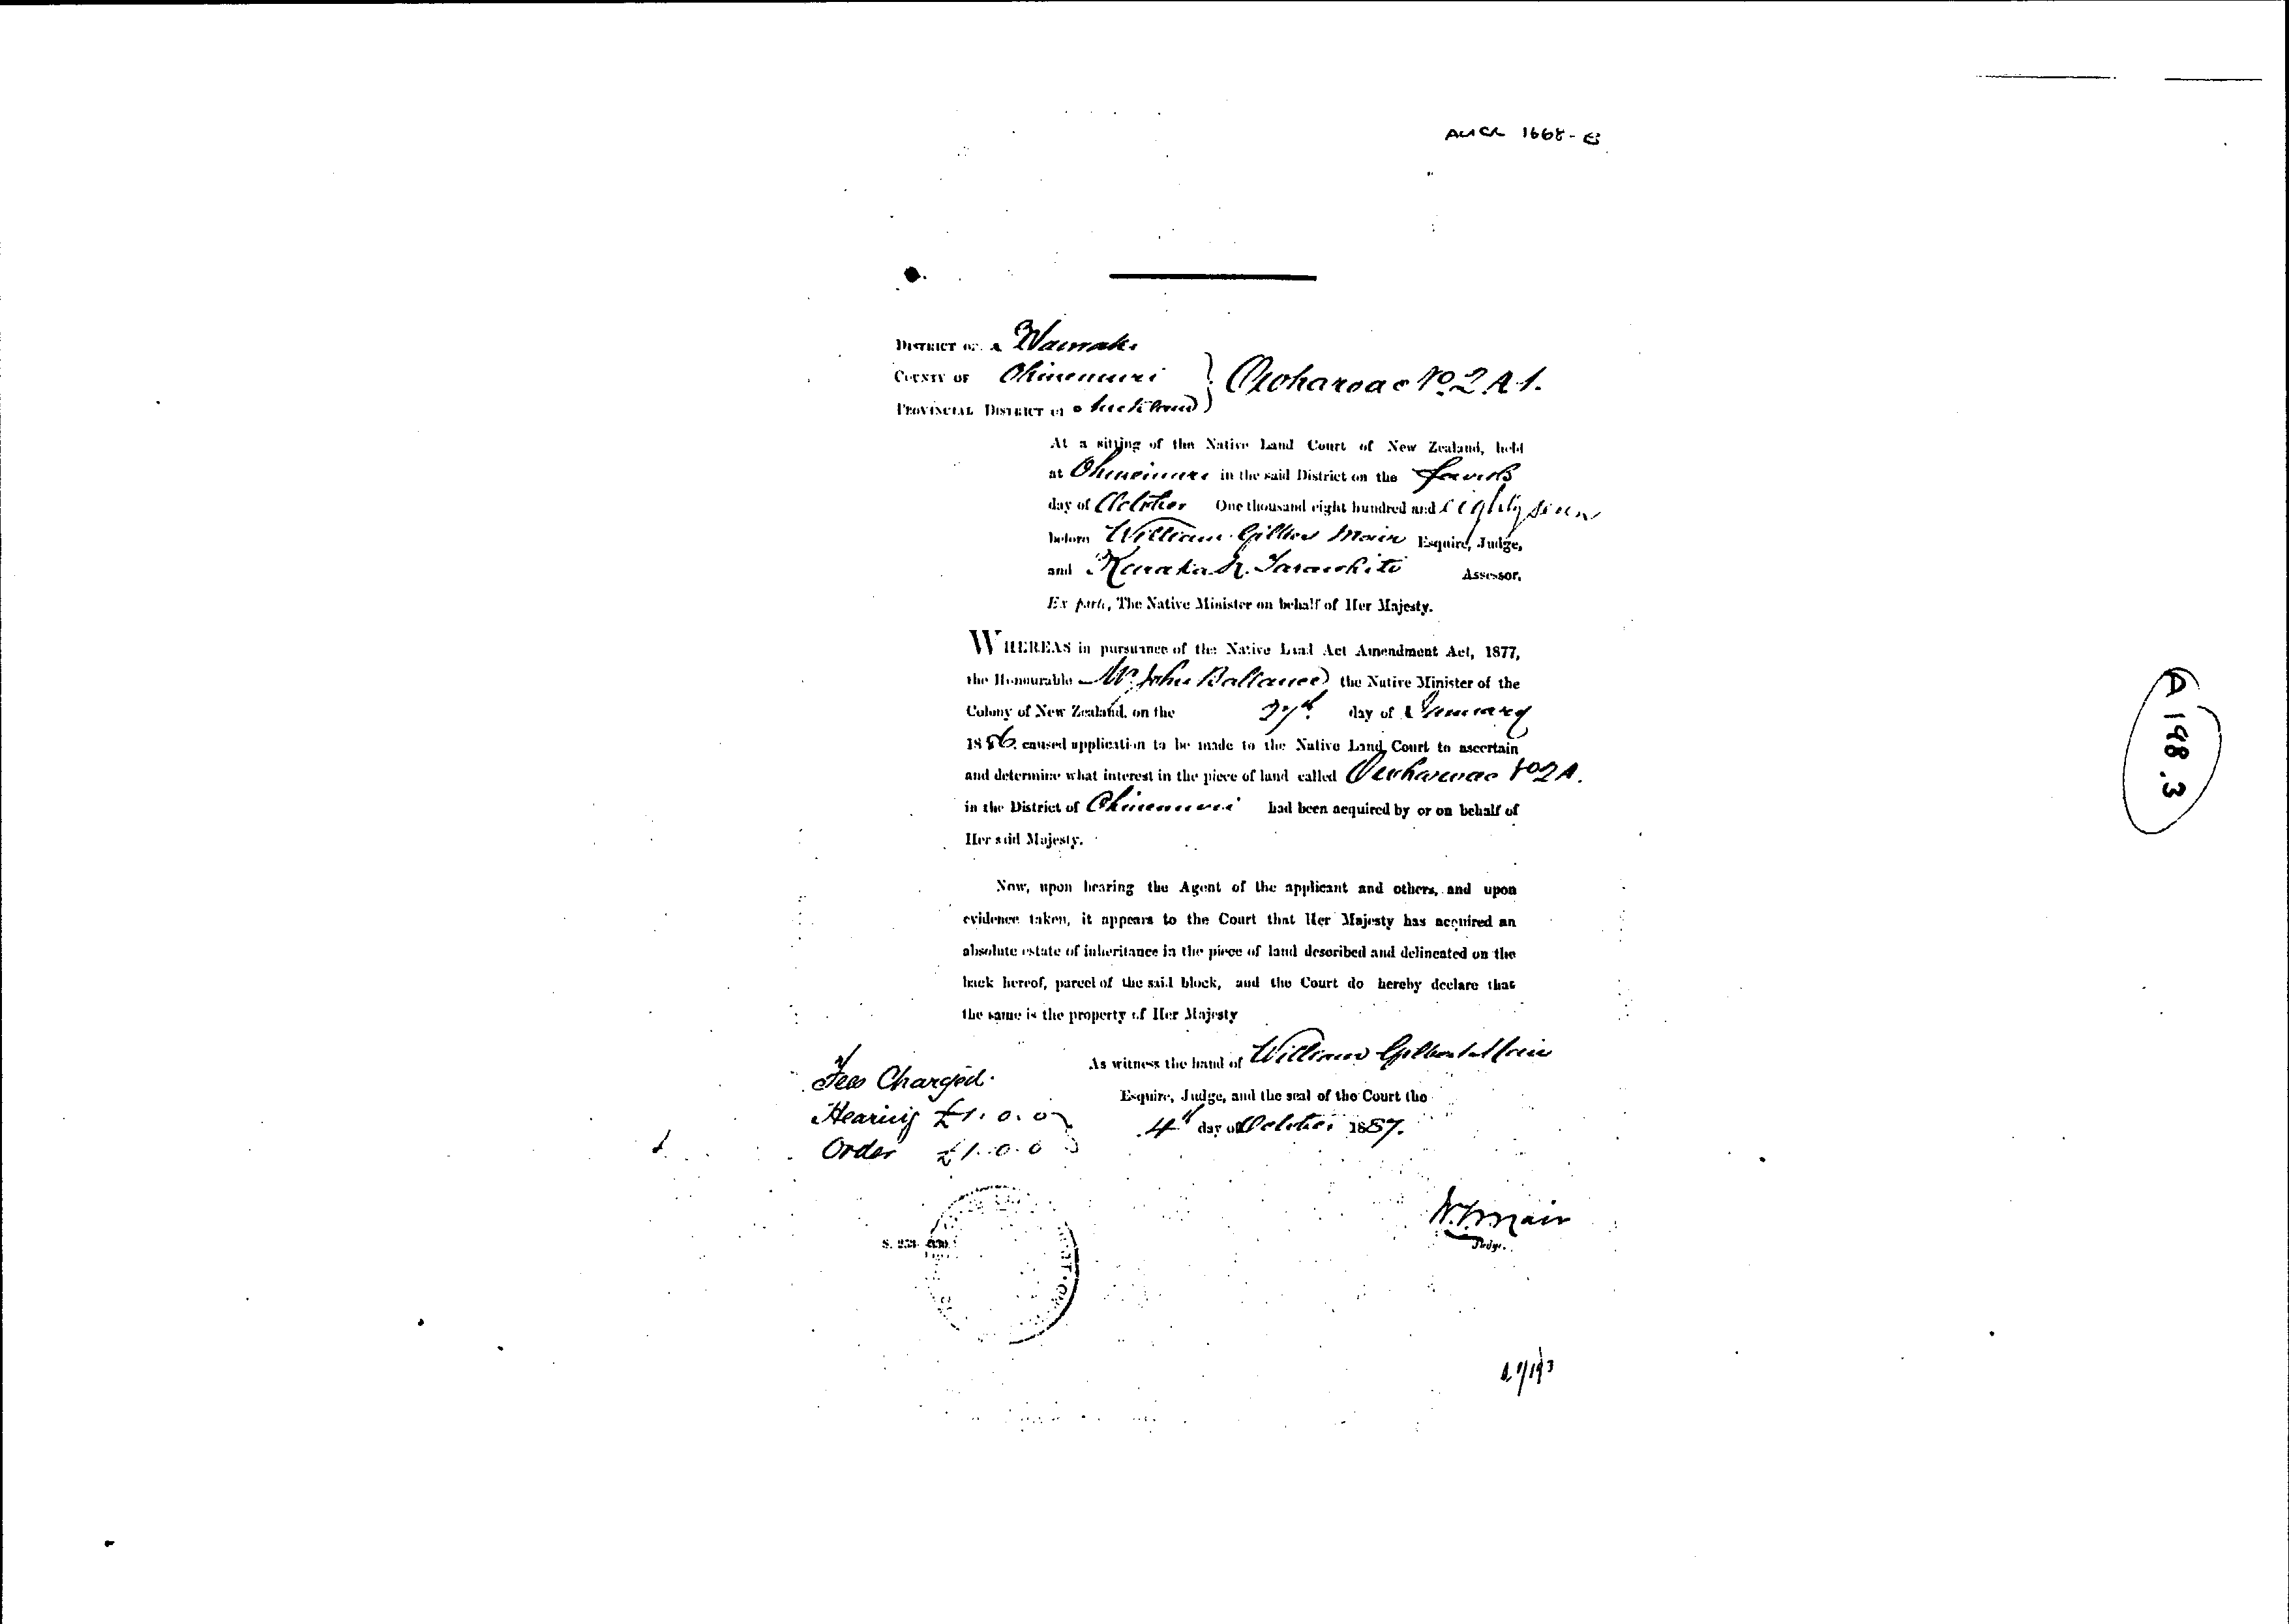 AUCK 1668-E
DISTRICT OF Hauraki
COUNTY OF Ohinemuri
PROVINCIAL DISTRICT OF Auckland
Owharoa No. 2 A 1.
At a sitting of the Native Land Court of New Zealand, held
at Ohinemuri in the said District on the fourth
day of October One thousand eight hundred and eighty seven
before William Gilbert Mair Esquire, Judge,
and Assessor.
Ex parte, The Native Minister on behalf of Her Majesty.
WHEREAS in pursuance of the Native Land Act Amendment Act, 1877,
the Honourable Mr. John Ballance the Native Minister of the
Colony of New Zealand, on the 27th day of January
1886 caused application to be made to the Native Land Court to ascertain
and determine what interest in the piece of land called No 2 A.
in the District of Ohinemuri had been acquired by or on behalf of
Her said Majesty.
Now, upon hearing the Agent of the applicant and others, and upon
evidence taken, it appears to the Court that Her Majesty has acquired an
absolute estate of inheritance in the piece of land described and delineated on the
back hereof, parcel of the said block, and the Court do hereby declare that
the same is the property of Her Majesty
As witness the hand of William Gilbert Mair
Esquire, Judge, and the seal of the Court the
4th day of October 1887.
Fees Charged.
Hearing £1. 0. 0
Order £1. 0. 0
W.G. Mair
Judge.
A 198.3